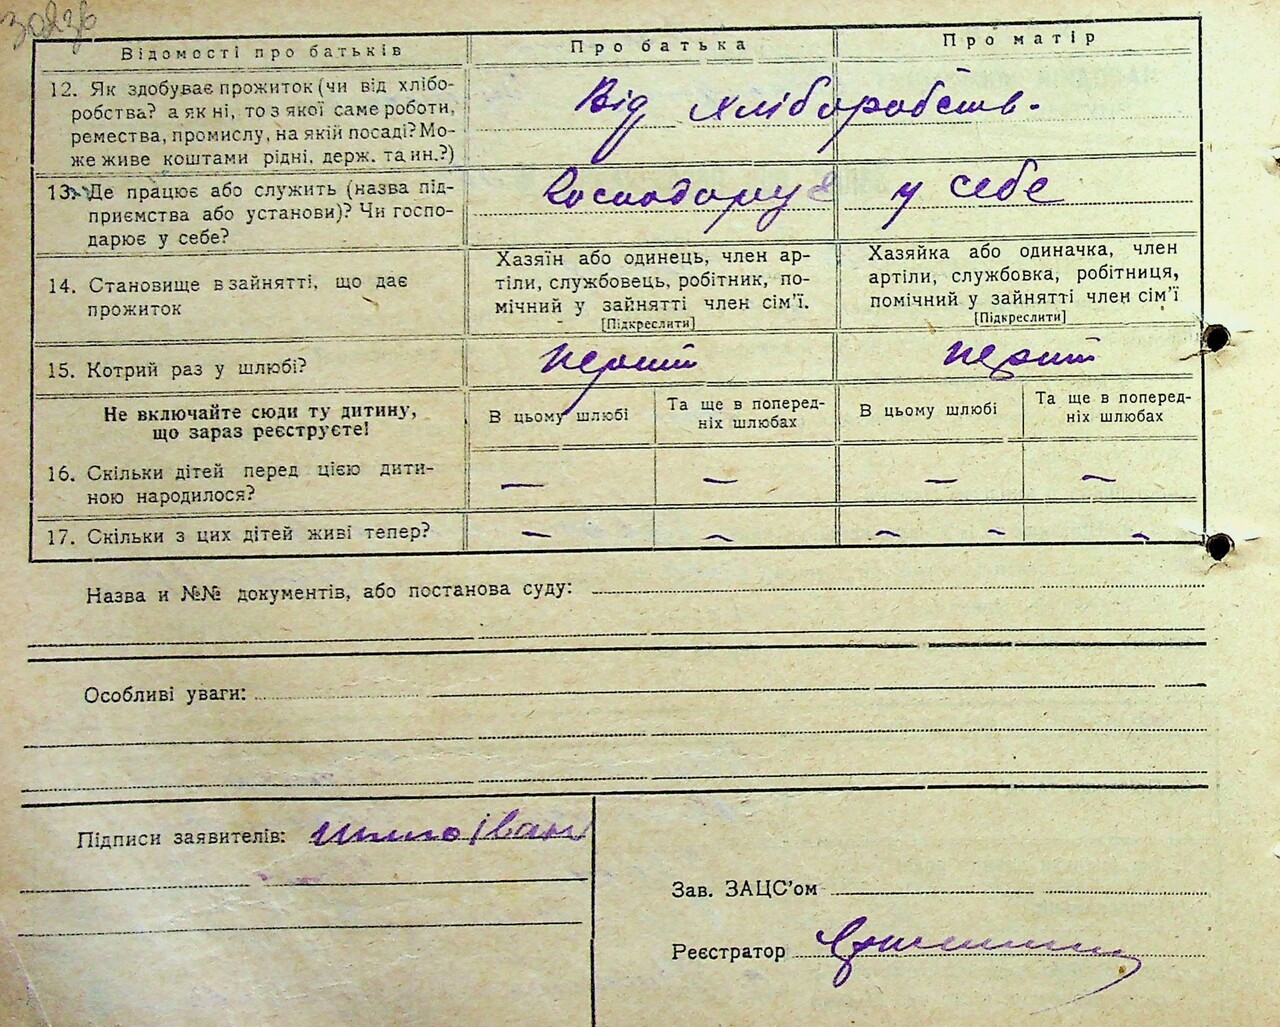 Відомості про батьків
Про батька
Про матір
12. Як здобуває прожиток (чи від хлібо-
робства? а як ні, то з якої саме роботи,
ремества, промислу, на якій посаді? Мо-
же живе коштами рідні, держ. та ин.?)
Від хліборобств.
13. Де працює або служить (назва під-
приємства або установи)? Чи госпо-
дарює у себе?
Господарує у себе
14. Становище в зайнятті, що дає
прожиток
Хазяїн або одинець, член ар-
тіли, службовець, робітник, по-
мічний у зайнятті член сім’ї.
[Підкреслити]
Хазяйка або одиначка, член
артіли, службовка, робітниця,
помічний у зайнятті член сім’ї
[Підкреслити]
15. Котрий раз у шлюбі?
перший
перший
Не включайте сюди ту дитину,
що зараз реєструєте!
В цьому шлюбі
Та ще в поперед-
ніх шлюбах
В цьому шлюбі
Та ще в поперед-
ніх шлюбах
16. Скільки дітей перед цією дити-
ною народилося?
— — — —
17. Скільки з цих дітей живі тепер?
— — — — —
Назва и №№ документів, або постанова суду:
Особливі уваги:
Підписи заявителів: Іван
Зав. ЗАЦС’ом
Реєстратор